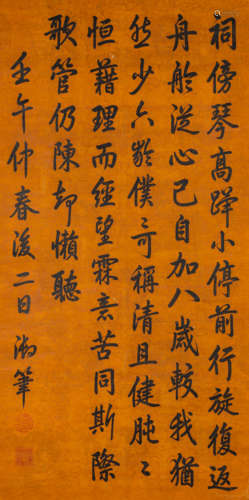 祠傍琴高蹕小停前行旋復返
舟舲從心已自加八歲較我猶
然少六齡僕僕可称清且健肫肫
恒藉理而經望霖意苦同斯際
歌管仍陳却懶聽
壬午仲春後二日 御筆